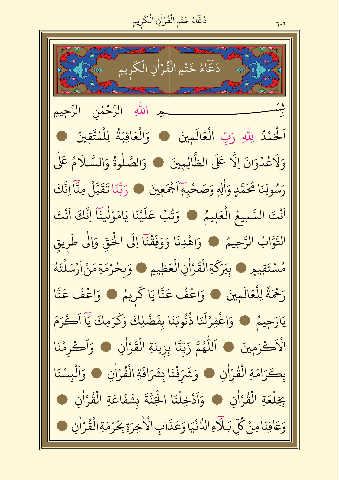 دُعَاءُ خَتْمِ الْقُرْاٰنِ الْكَرِيمِ
٦٠٦
دُعَاءُ خَتْمِ الْقُرْاٰنِ الْكَرِيمِ
بِسْمِ اللّٰهِ الرَّحْمٰنِ الرَّحِيمِ
اَلْحَمْدُ لِلّٰهِ رَبِّ الْعَالَمِينَ ۝ وَالْعَاقِبَةُ لِلْمُتَّقِينَ ۝
وَلَاعُدْوَانَ اِلَّا عَلَى الظَّالِمِينَ ۝ وَالصَّلٰوةُ وَالسَّلَامُ عَلٰى
رَسُولِنَا مُحَمَّدٍ وَاٰلِهِ وَصَحْبِهِ اَجْمَعِينَ ۝ رَبَّنَا تَقَبَّلْ مِنَّا اِنَّكَ
اَنْتَ السَّمِيعُ الْعَلِيمُ ۝ وَتُبْ عَلَيْنَا يَامَوْلٰينَا اِنَّكَ اَنْتَ
التَّوَّابُ الرَّحِيمُ ۝ وَاهْدِنَا وَوَفِّقْنَا اِلَى الْحَقِّ وَاِلٰى طَرِيقٍ
مُسْتَقِيمٍ ۝ بِبَرَكَةِ الْقُرْاٰنِ الْعَظِيمِ ۝ وَبِحُرْمَةِ مَنْ اَرْسَلْتَهُ
رَحْمَةً لِلْعَالَمِينَ ۝ وَاعْفُ عَنَّا يَا كَرِيمُ ۝ وَاعْفُ عَنَّا
يَارَحِيمُ ۝ وَاغْفِرْلَنَا ذُنُوبَنَا بِفَضْلِكَ وَكَرَمِكَ يَا اَكْرَمَ
الْاَكْرَمِينَ ۝ اَللّٰهُمَّ زَيِّنَّا بِزِينَةِ الْقُرْاٰنِ ۝ وَاَكْرِمْنَا
بِكَرَامَةِ الْقُرْاٰنِ ۝ وَشَرِّفْنَا بِشَرَافَةِ الْقُرْاٰنِ ۝ وَاَلْبِسْنَا
بِخِلْعَةِ الْقُرْاٰنِ ۝ وَاَدْخِلْنَا الْجَنَّةَ بِشَفَاعَةِ الْقُرْاٰنِ ۝
وَعَافِنَا مِنْ كُلِّ بَلَاءِ الدُّنْيَا وَعَذَابِ الْاٰخِرَةِ بِحُرْمَةِ الْقُرْاٰنِ ۝